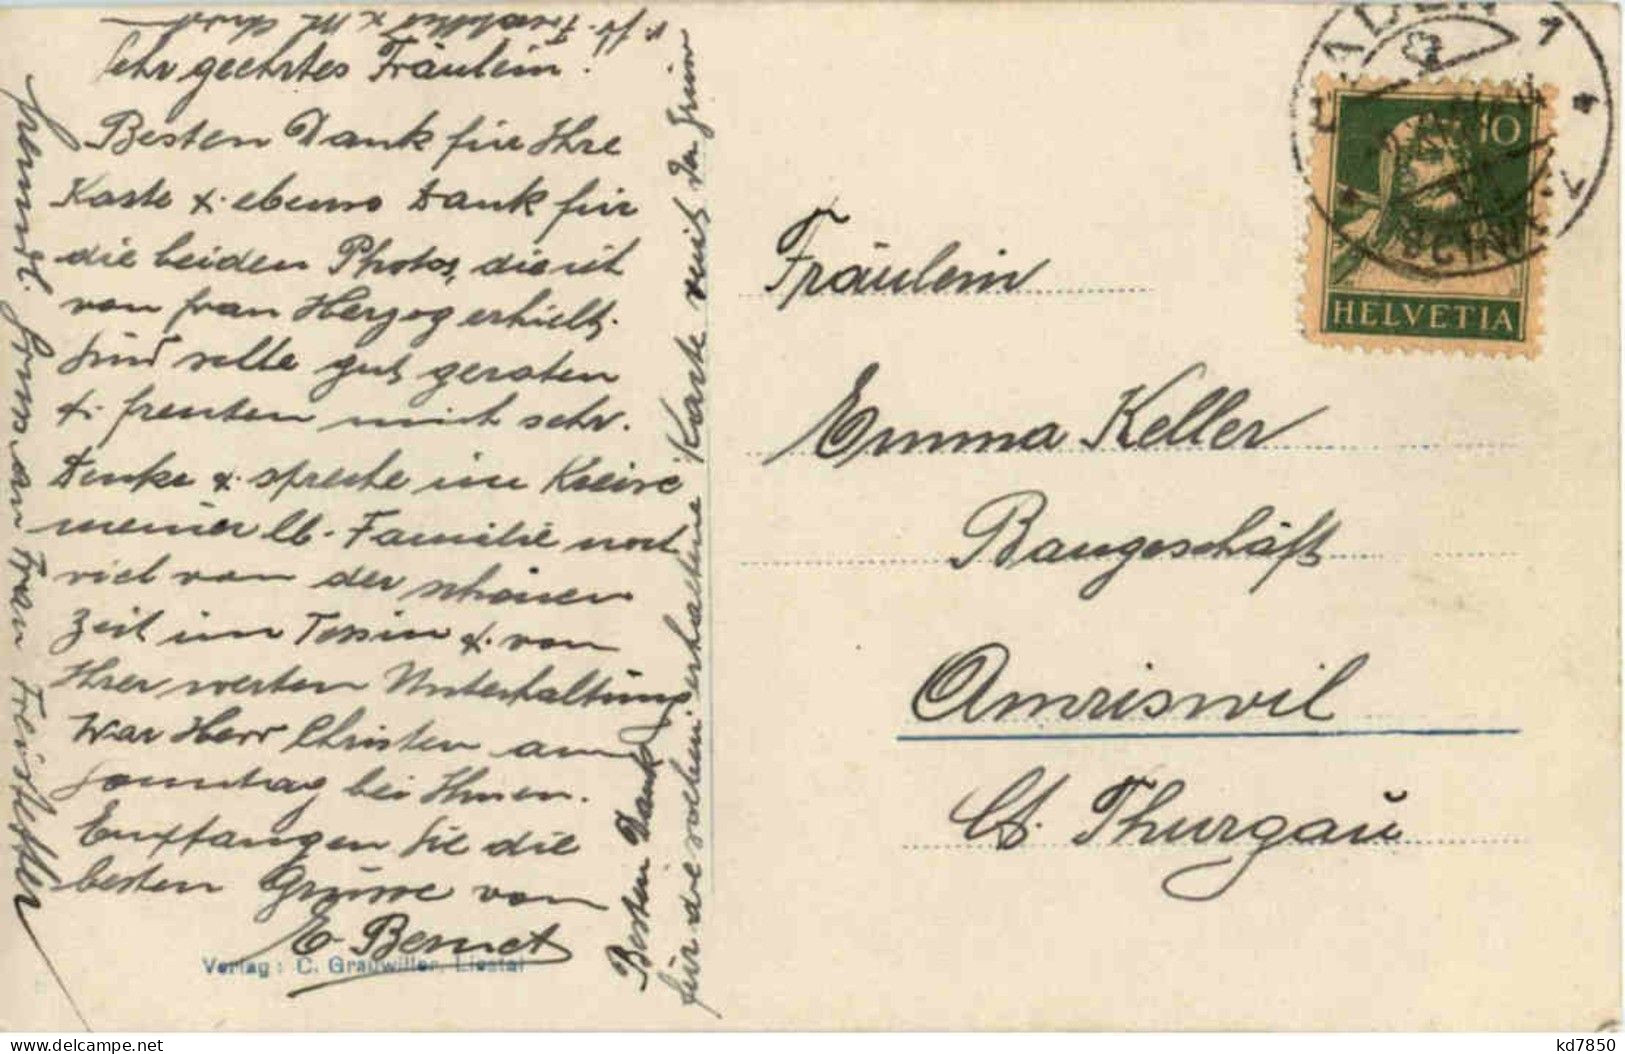 Sehr geehrtes Fräulein!
Besten Dank für Ihre
Karte & ebenso Dank für
die beiden Photos, die ich
von Frau Herzog erhielt.
Sind
gut geraten
& freuten mich sehr.
Denke & spreche im Kreise
meiner lb. Familie noch
viel von der schönen
Zeit im Tessin & von
Ihrer werten Unterhaltung.
War Herr Christen am
Sonntag bei Ihnen.
Empfangen Sie die
besten Grüsse von
E Bernet
Verlag: C. Grauwiller, Liestal
Besten Dank
für die soeben erhaltene Karte mit den
freundl.
an Frau
Fräulein
Emma Keller
Baugeschäft
Amriswil
Ct. Thurgau
BADEN 1
SCHWEIZ
10
HELVETIA
kd7850